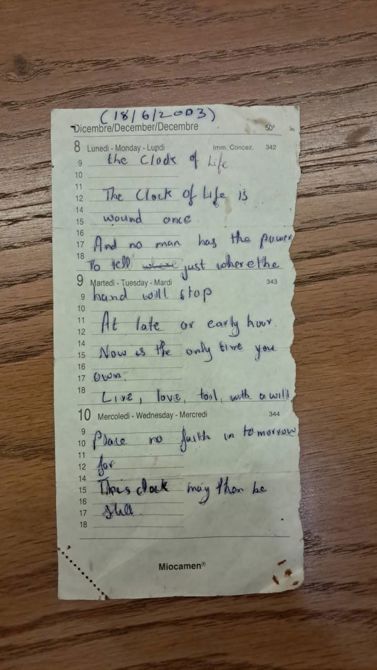 (18/6/2003)
Dicembre/December/Decembre 50°
8 Lunedi - Monday - Lundi Imm. Concez. 342
9 the Clock of Life
10
11
12 The Clock of Life is
14
15 wound once
16
17 And no man has the power
18 To tell just where the
9 Martedi - Tuesday - Mardi 343
9 hand will stop
10
11 At late or early hour.
12
14 Now is the only time you
15
16
17 own.
18 Live, love, toil, with a will
10 Mercoledi - Wednesday - Mercredi 344
9
10 Place no faith in tomorrow
11
12 for
14
15 This clock may then be
16
17 still.
18
Miocamen®